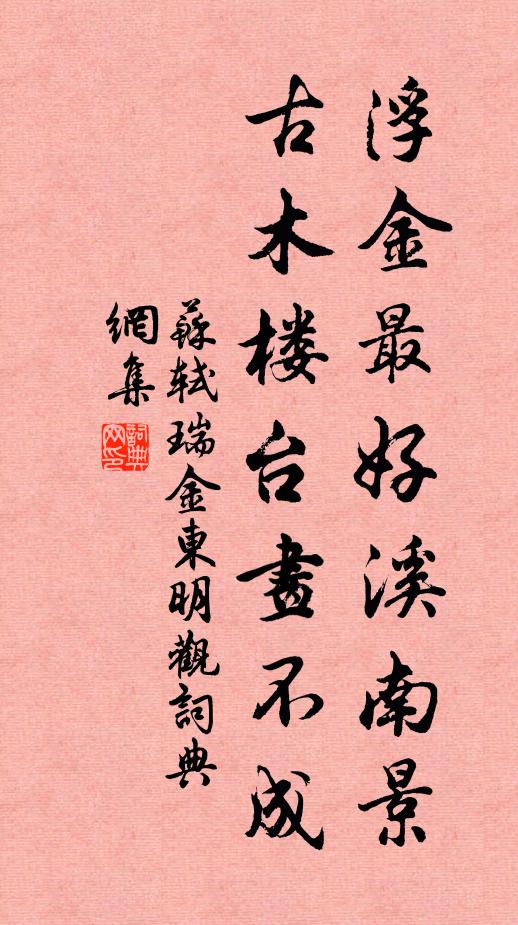 浮金最好溪南景
古木楼台畫不成
蘇轼瑞金東明觀詞典
網集
詞典
网印